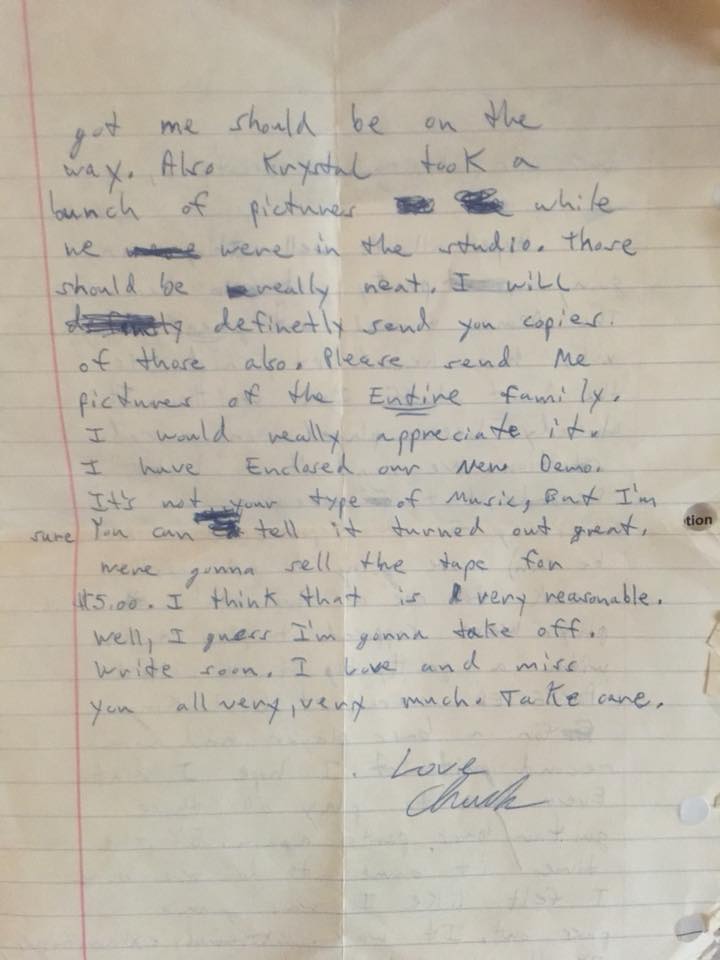 got me should be on the
way. Also Krystal took a
bunch of pictures while
we were in the studio. those
should be really neat. I will
definetly send you copies.
of those also. Please send Me
pictures of the Entire family.
I would really appreciate it.
I have Enclosed our New Demo.
It's not your type of Music, But I'm
sure You can tell it turned out great.
were gonna sell the tape for
$5.00. I think that is very reasonable.
Well, I guess I'm gonna take off.
Write soon. I Love and miss
you all very, very much. Take care.
Love
Chuck
tion